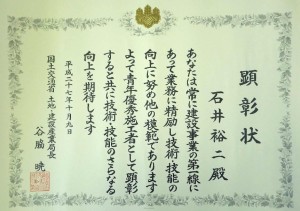 顕彰状
石井裕二殿
あなたは常に建設事業の第一線に
あって業務に精励し技術・技能の
向上に努め他の模範であります
よって青年優秀施工者として顕彰
すると共に技術・技能のさらなる
向上を期待します
平成二十七年十月九日
国土交通省 土地・建設産業局長
谷脇 暁